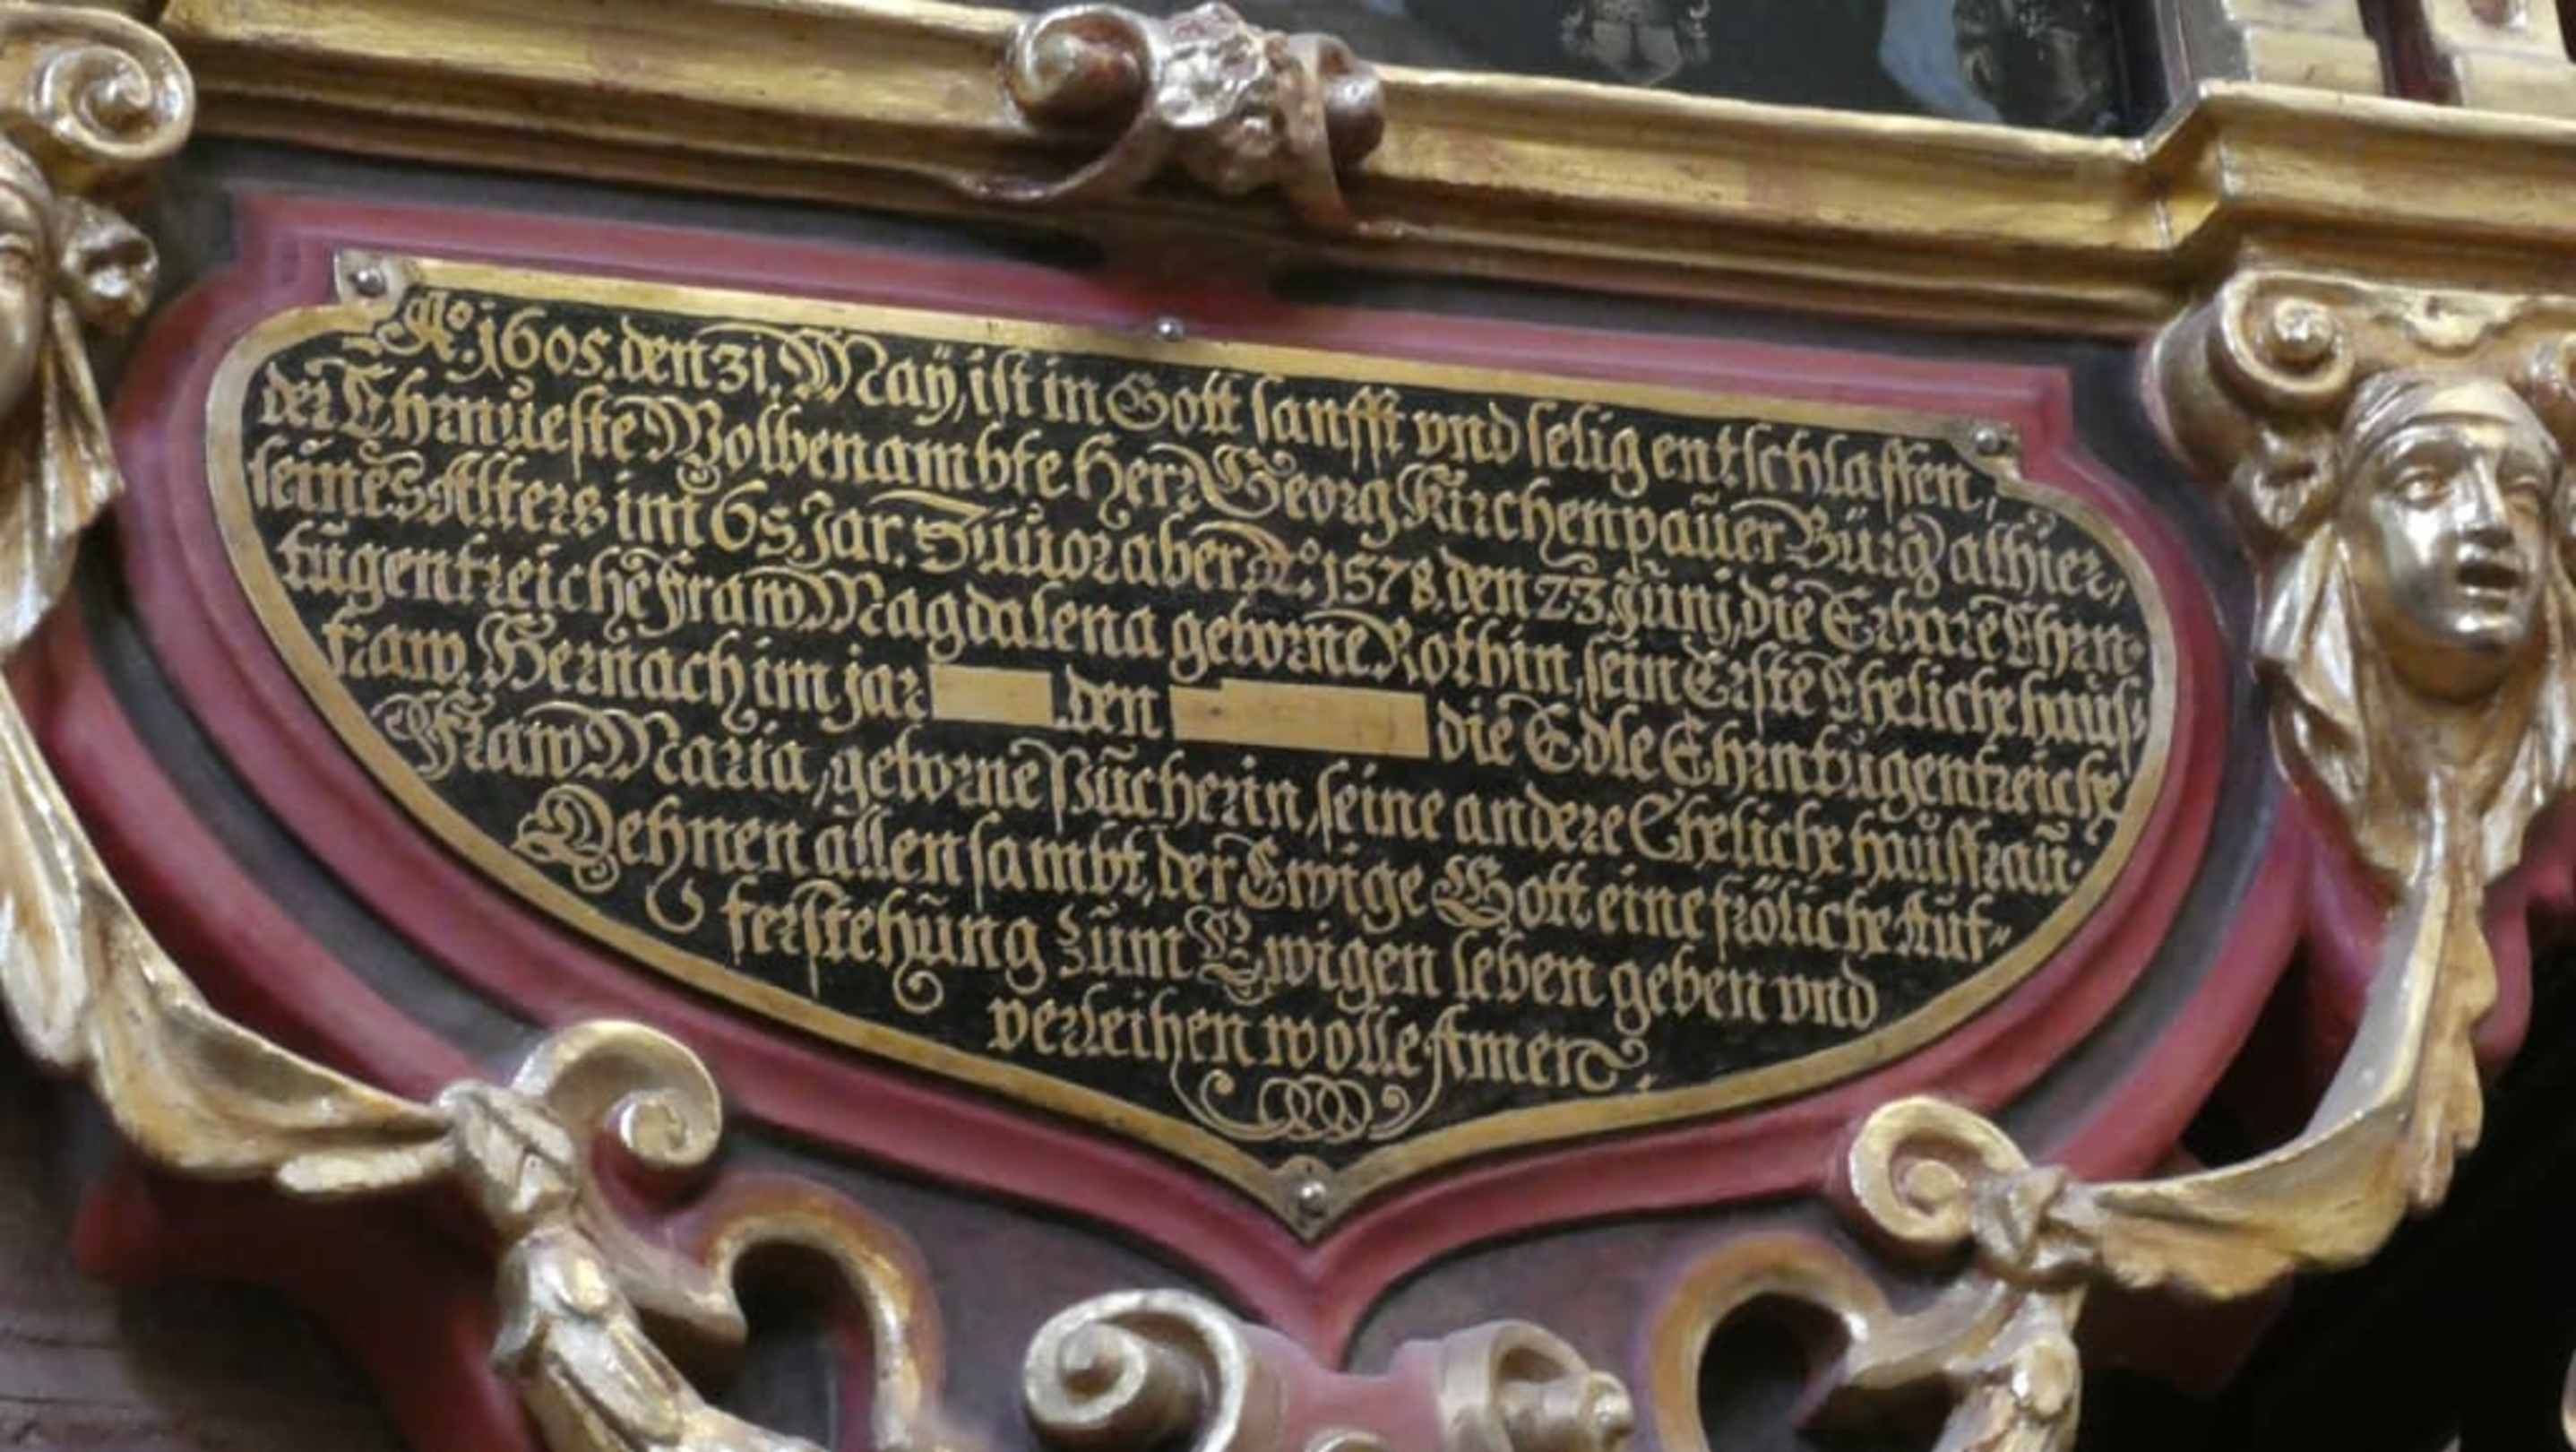 Aº. 1605. den 31. Maÿ, ist in Gott sanfft vnd selig entschlaffen,
der Ehrnueste Wolbenambte Herr Georg Kirchenpaŭer Bürg̃ alhier,
seines Alters im 65. Jar. Zŭuor aber Aº. 1578. den 23. Junij, die Erbare Ehrn-
tŭgentreiche Fraw Magdalena geborne Rothin, sein Erste Eheliche haŭs-
fraw. Hernach im jar . den die Edle Ehrntŭgentreiche
Fraw Maria, geborne Pŭcherin, seine andere Eheliche haŭsfraŭ.
Dehnen allen sambt, der Ewige Gott eine fröliche Aŭf-
ferstehŭng zŭm Ewigen leben geben vnd
verleihen wolle Amen.